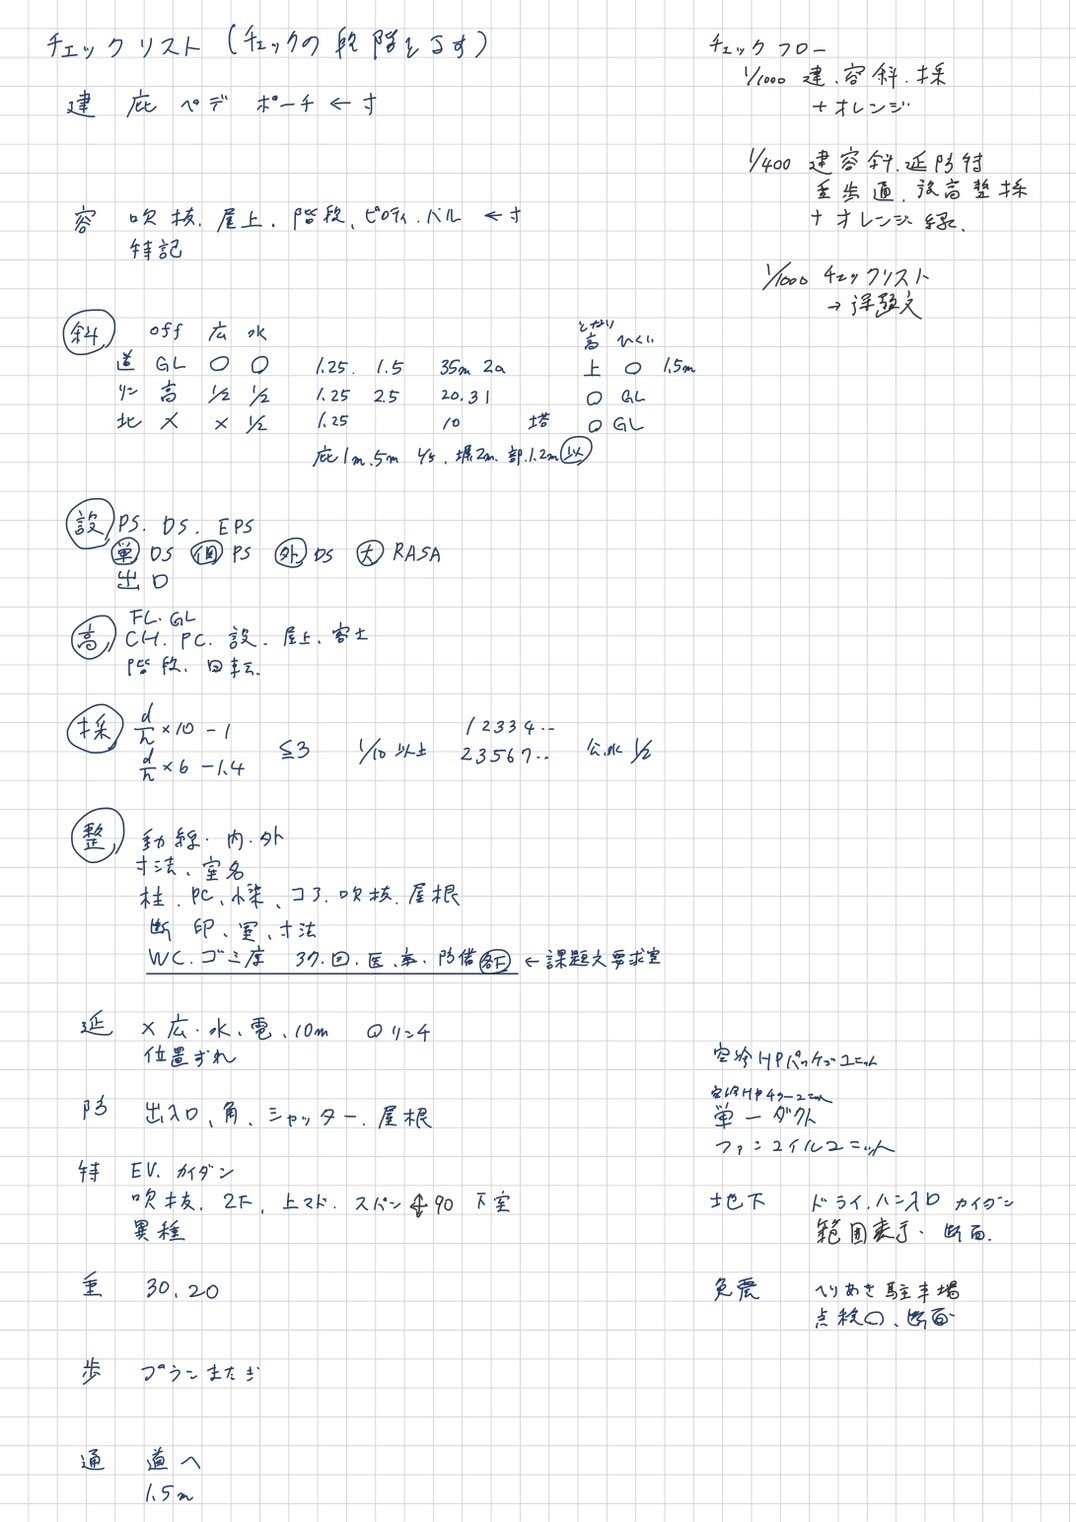 チェックリスト(チェックの段階を示す)
建 庇 ペデ ポーチ ← 寸
容 吹抜、屋上、階段、ピロティ、バル ← 寸
特記
斜 off 広 水
道 GL ○ ○ 1.25. 1.5 35m 2a
リン 高 1/2 1/2 1.25 2.5 20.31
北 × × 1/2 1.25 10 塔
となり
高 ひくい
上 ○ 1.5m
○ GL
○ GL
庇1m.5m 1/5、塀2m. 部.1.2m 以
設 PS. DS. EPS
単 DS 個 PS 外 DS 大 RASA
出口
高 FL. GL
CH. PC. 設. 屋上. 客土
階段. 回転.
採 d/h ×10 -1
d/h ×6 -1.4
≦3 1/10以上
12334..
23567..
公.水 1/2
整 動線. 内. 外
寸法、室名
柱. PC、梁、コア. 吹抜. 屋根
断 印、室、寸法
WC. ゴミ庫 37. 回. 医. 防備 各F ← 課題文要求室
延 × 広. 水、電、10m ○リンチ
位置ずれ
防 出入口、角、シャッター. 屋根
特 EV. カイダン
吹抜. 2下、上マド. スパン 90 下室
異種
重 30.20
歩 プランまたぎ
通 道へ
1.5m
チェックフロー
1/1000 建.容斜.採
+オレンジ
1/400 建容斜.延防特
重歩通.設高整採
+オレンジ 緑.
1/1000 チェックリスト
→ 課題文
空冷HPパッケージユニット
空冷HPチラーユニット
単一ダクト
ファンコイルユニット
地下 ドライ.ハン入口 カイダン
範囲表示. 断面.
免震 へりあき 駐車場
点検口、断面